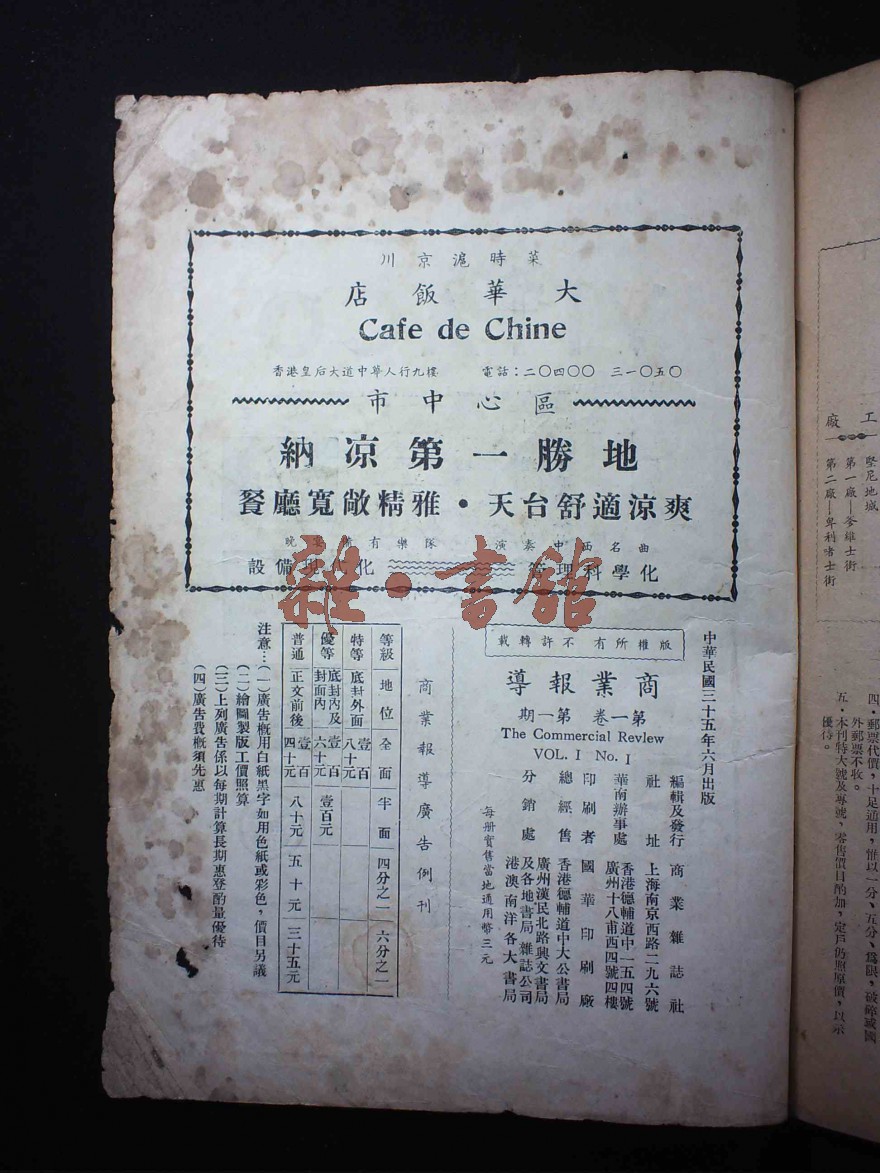 川京滬時菜
大華飯店
Cafe de Chine
香港皇后大道中華人行九樓 電話：二〇四〇〇 三一〇五〇
市中心區
納涼第一勝地
餐廳寬敞精雅・天台舒適涼爽
晚宴備有樂隊 演奏中西名曲
設備現代化 管理科學化
雜・書館
中華民國三十五年六月出版
版權所有 不許轉載
商業報導
第一卷 第一期
The Commercial Review
VOL. I No. I
編輯及發行 商業雜誌社
社址 上海南京西路二九六號
華南辦事處 香港德輔道中一五四號
廣州十八甫西四號四樓
印刷者 國華印刷廠
總經售 香港德輔道中大公書局
廣州漢民北路興文書局
分銷處 及各地書局雜誌公司
港澳南洋各大書局
每册實售當地通用幣三元
商業報導廣告例刊
等級 地位 全面 半面 四分之一 六分之一
特等 底封外面 壹百八十元
優等 底封內及封面內 壹百六十元 壹百元
普通 正文前後 壹百四十元 八十元 五十元 三十五元
注意：(一)廣告概用白紙黑字如用色紙或彩色，價目另議
(二)繪圖製版工價照算
(三)上列廣告係以每期計算長期惠登酌量優待
(四)廣告費概須先惠
工廠
堅尼地城
第一廠—爹維士街
第二廠—卑利啫士街
四・郵票代價，十足通用，惟以一分、五分、爲限，破碎或國
外郵票不收。
五・本刊特大號及專號，零售價目酌加，定戶仍照原價，以示
優待。